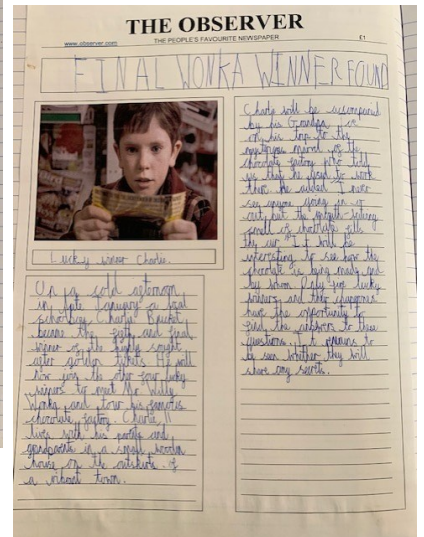 THE OBSERVER
www.observer.com
THE PEOPLE'S FAVOURITE NEWSPAPER
£1
FINAL WONKA WINNER FOUND
Lucky winner Charlie.
On a cold afternoon
in late January a local
schoolboy Charlie Bucket
became the fifth and final
winner of the highly sought
after golden tickets. He will
now join the other four lucky
winners to meet Mr. Willy
Wonka and tour his famous
chocolate factory. Charlie
lives with his parents and
grandparents in a small wooden
house on the outskirts of
a vibrant town.
Charlie will be accompanied
by his Grandpa
on his trip to the
mysterious marvel of the
chocolate factory who told
us that he used to work
there. He added I never
see anyone going in or
out but the mouth-watering
smell of chocolate fills
the air". It will be
interesting to see how the
chocolate is being made and
by whom. Only five lucky
winners and their chaperones
have the opportunity to
find the answers to these
questions. It remains to
be seen whether they will
share any secrets.